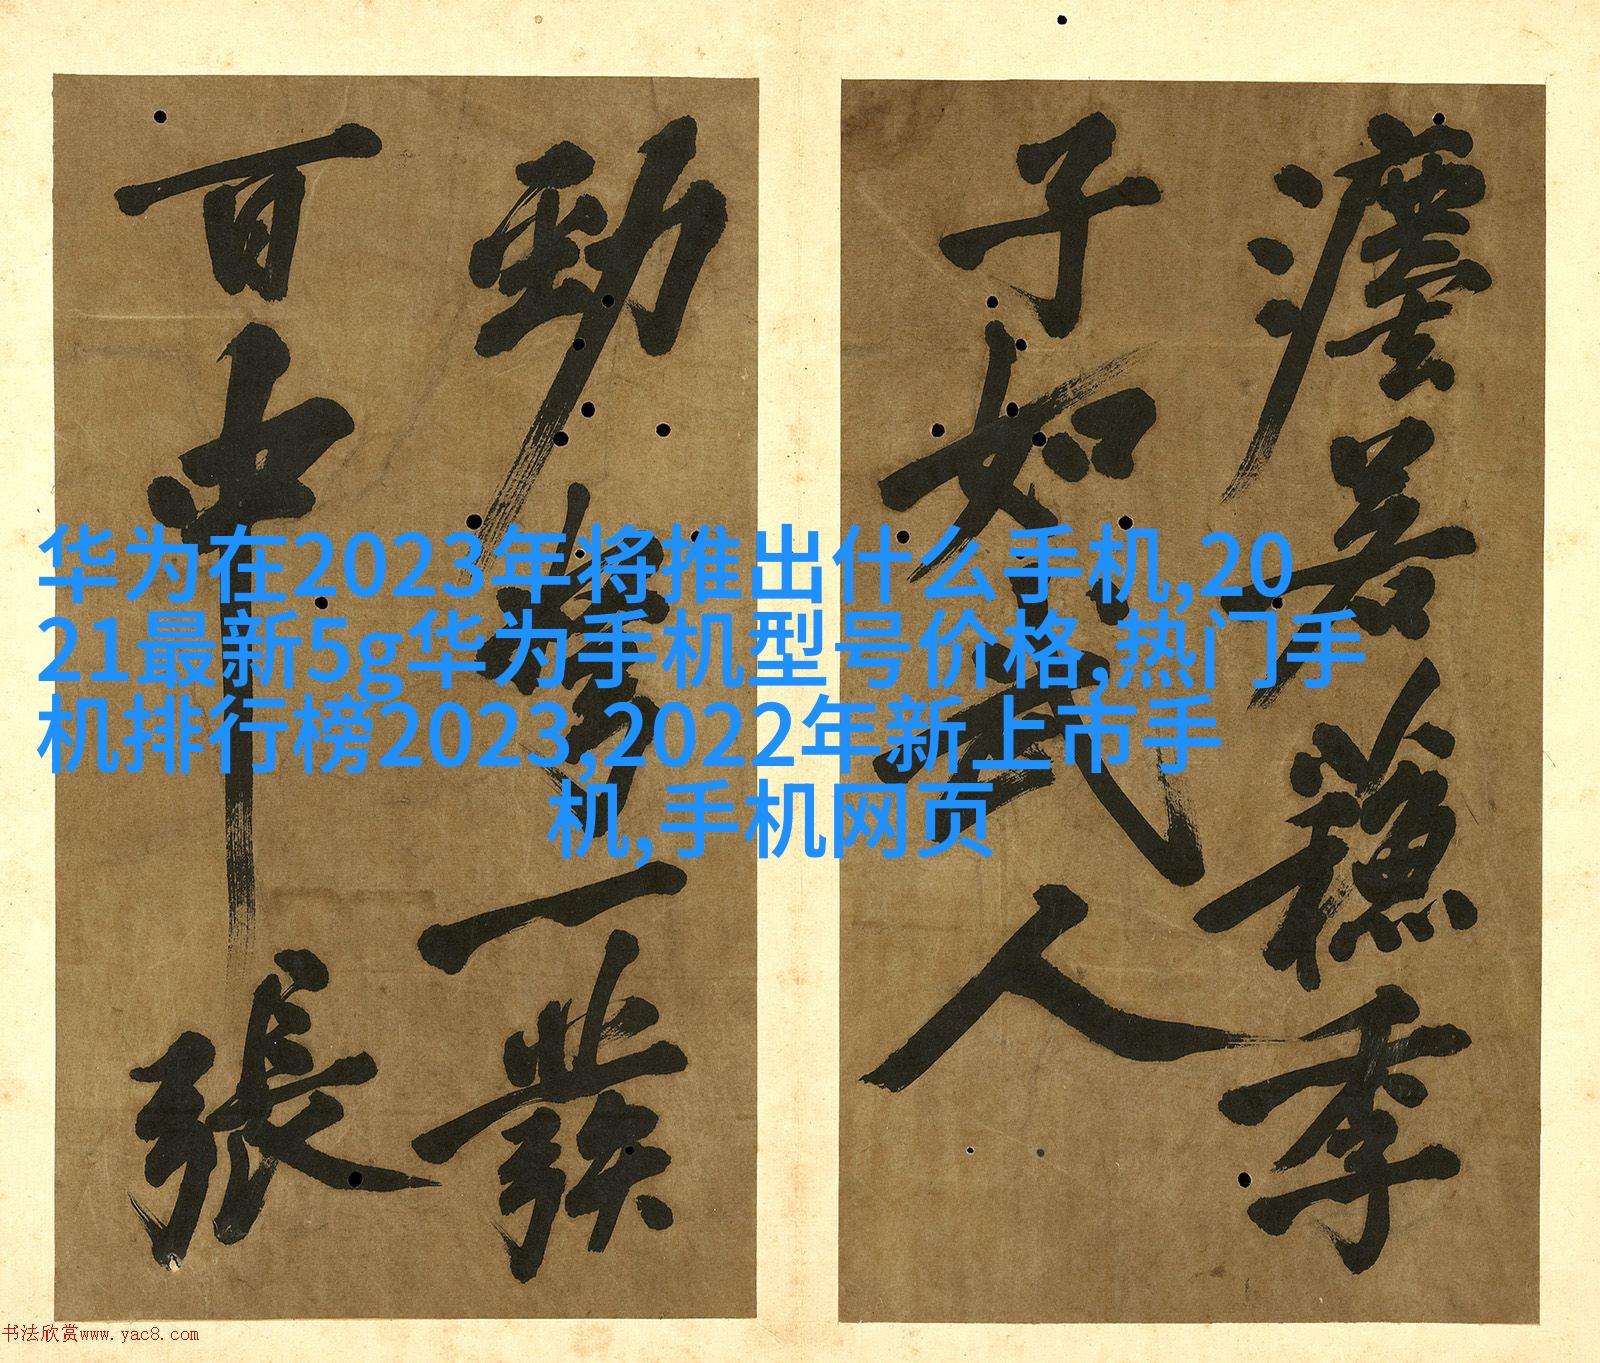 华为在2023年将推出什么手机,20
21最新5g华为手机型号价格,热门手
机排行榜2023,2022年新上市手
机,手机网页
若季
子如武人
勁一發
百中張
书法欣赏www.yac8.com